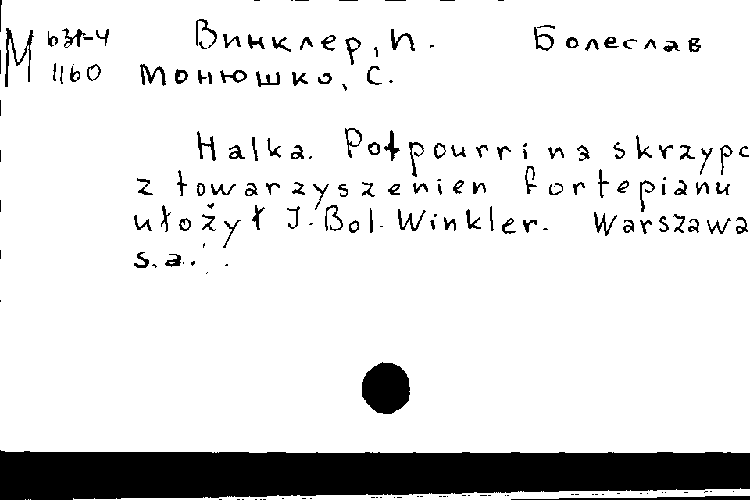 M 631-4 Винклер, И. Болеслав
1160 Монюшко, С.
Halka. Potpourri na skrzypc
z towarzyszenien fortepianu
ułożył J. Bol. Winkler. Warszawa
s.a.